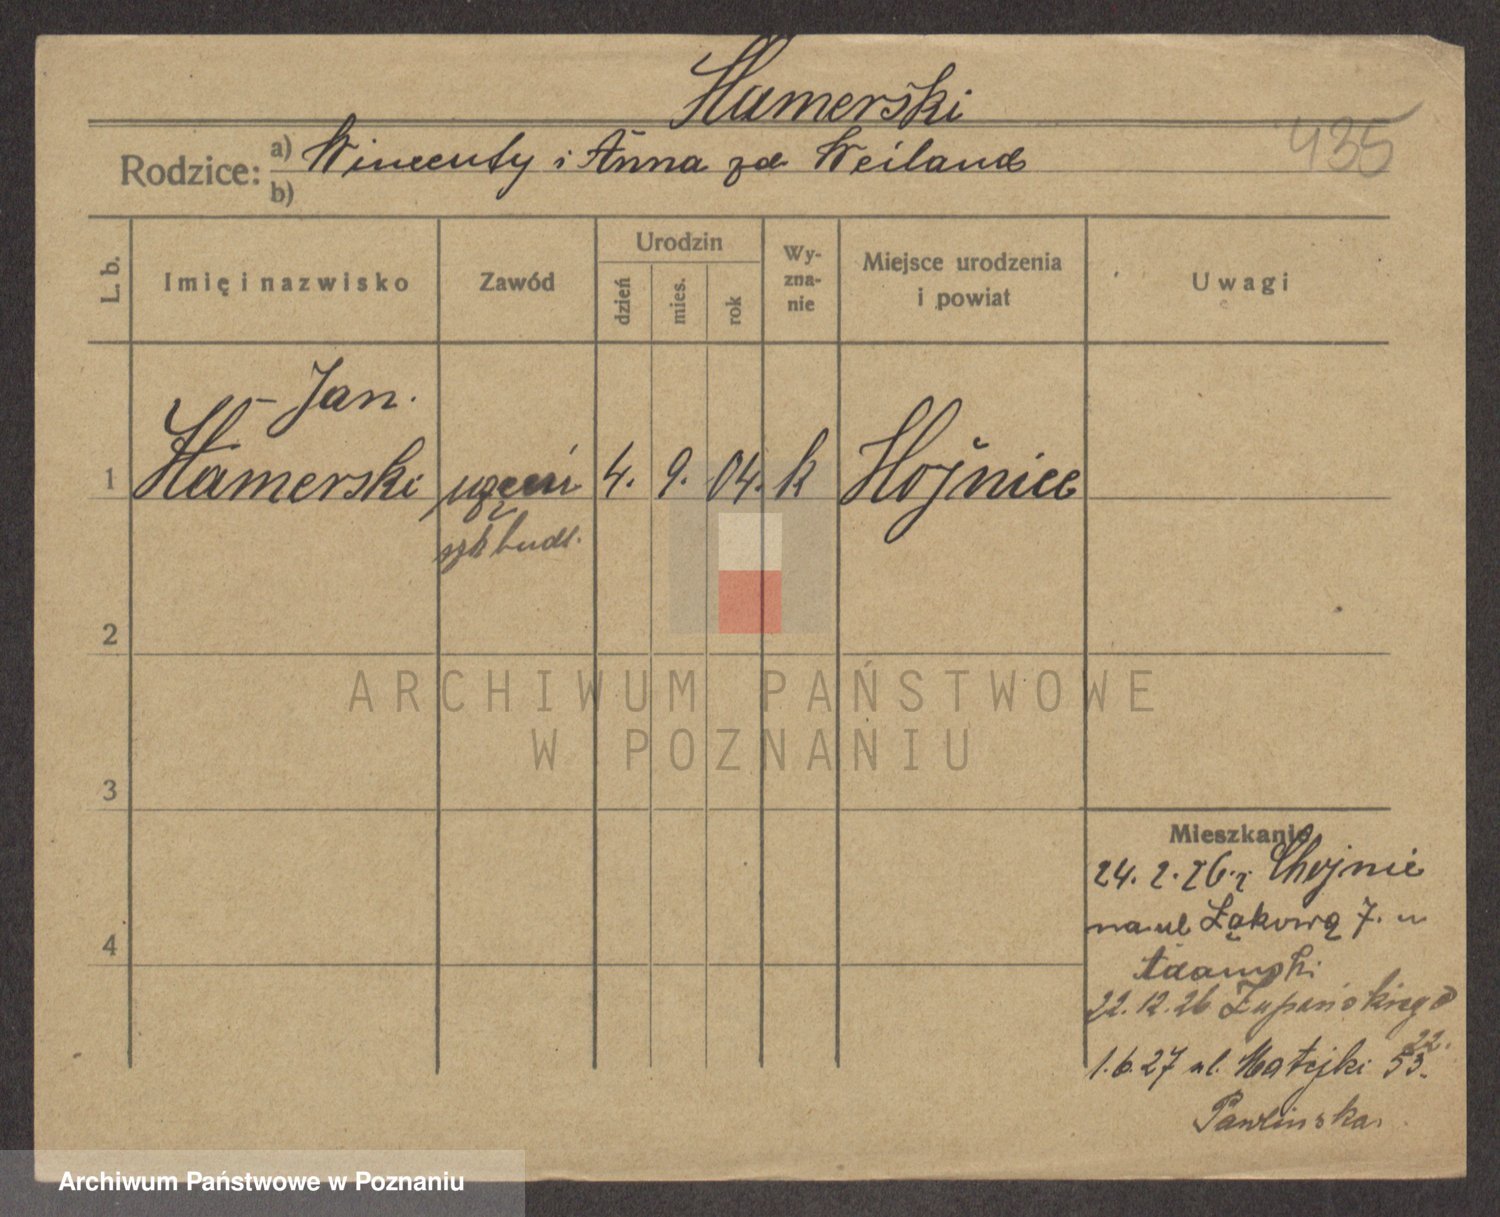 Hamerski
435
Rodzice: a) Wincenty i Anna zd Weiland
b)
L. b. Imię i nazwisko Zawód Urodzin dzień mies. rok Wy-zna-nie Miejsce urodzenia i powiat Uwagi
Jan.
1 Hamerski uczeń 4. 9. 04. k Hojnice
szk budl.
2
ARCHIWUM PAŃSTWOWE
W POZNANIU
3
Mieszkanie
24. 2. 26. z Chojnic
na ul Łąkową 7. u
4
Adamski
22.12.26 Żupańskiego
22.
1.6.27 ul. Matejki 53.
Pawlinska.
Archiwum Państwowe w Poznaniu